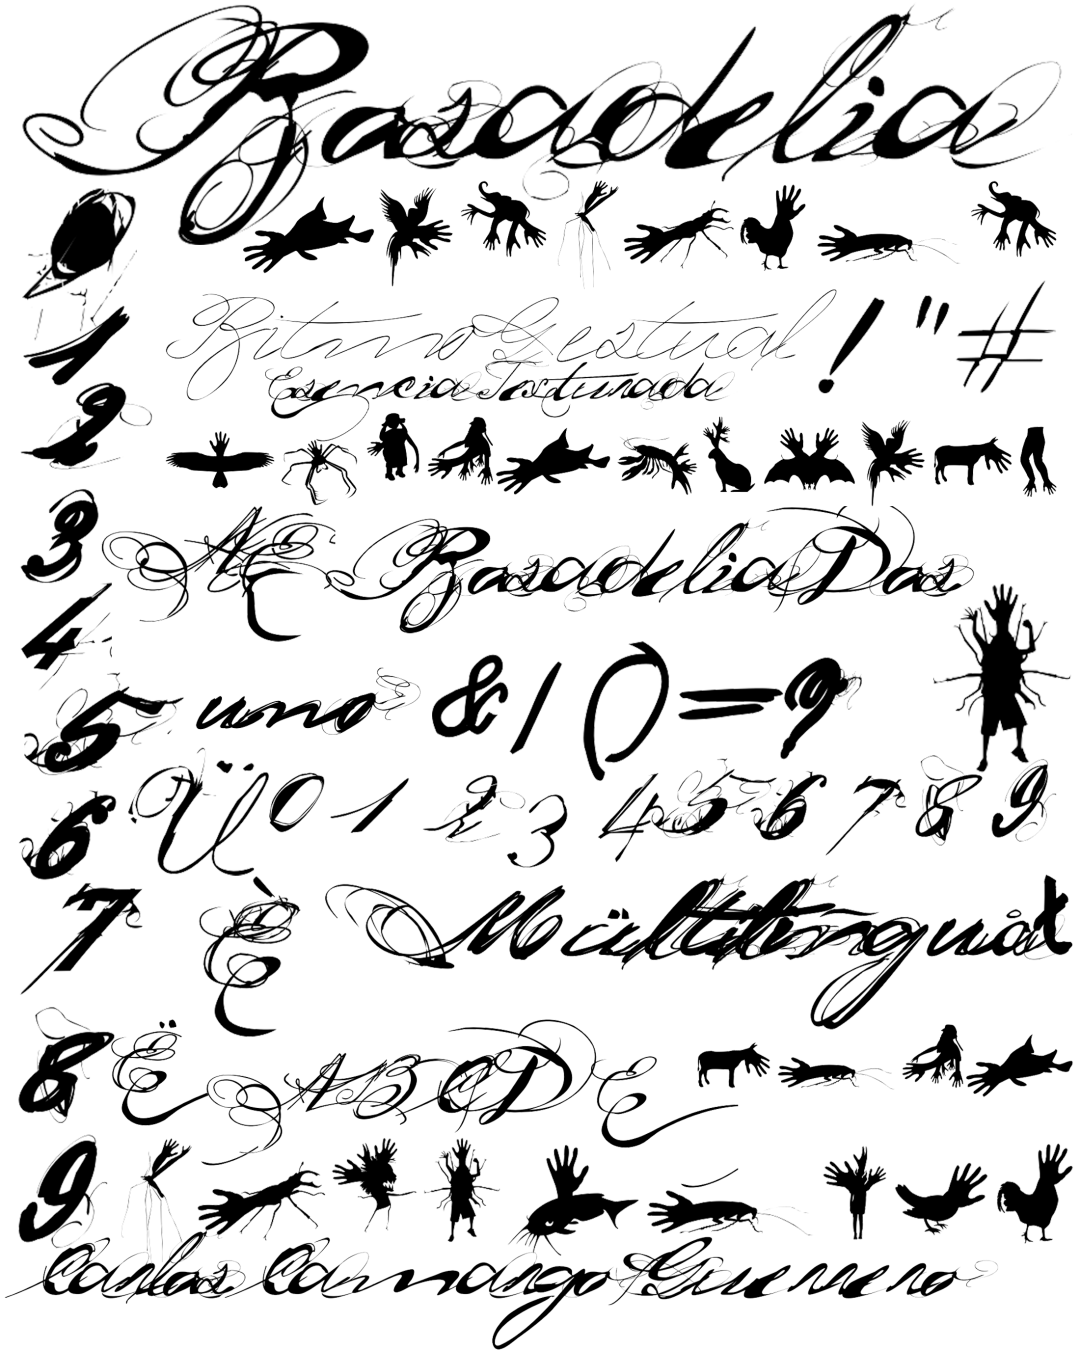 Rasadelia
0
1
Ritmo Gestual ! " #
Esencia Texturada
2
3
Æ Rasadelia Das
4
5 uno & / ( ) = 9
6 Ü 0 1 2 3 4 5 6 7 8 9
7 È Mültilinguål
8 Ë A B C D E
9
Carlos Camargo Guerrero